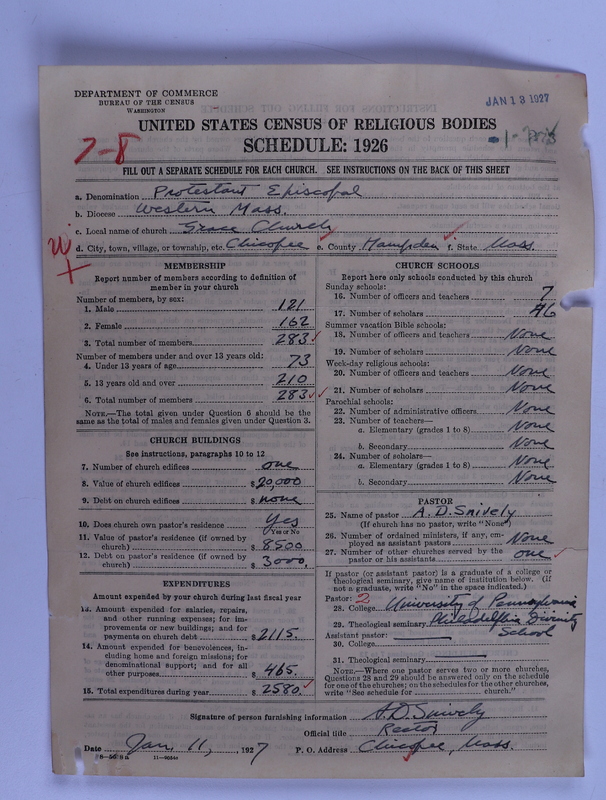 DEPARTMENT OF COMMERCE
BUREAU OF THE CENSUS
WASHINGTON
JAN 13 1927
UNITED STATES CENSUS OF RELIGIOUS BODIES
SCHEDULE: 1926
7-8
FILL OUT A SEPARATE SCHEDULE FOR EACH CHURCH. SEE INSTRUCTIONS ON THE BACK OF THIS SHEET
a. Denomination Protestant Episcopal
b. Diocese Western Mass.
c. Local name of church Grace Church
d. City, town, village, or township, etc. Chicopee e. County Hampden f. State Mass.
MEMBERSHIP
Report number of members according to definition of
member in your church
Number of members, by sex:
1. Male 121
2. Female 162
3. Total number of members 283
Number of members under and over 13 years old:
4. Under 13 years of age 73
5. 13 years old and over 210
6. Total number of members 283
NOTE.—The total given under Question 6 should be the
same as the total of males and females given under Question 3.
CHURCH BUILDINGS
See instructions, paragraphs 10 to 12
7. Number of church edifices one
8. Value of church edifices $20,000
9. Debt on church edifices $ none
10. Does church own pastor's residence Yes
Yes or No
11. Value of pastor's residence (if owned by
church) $ 8500
12. Debt on pastor's residence (if owned by
church) $ 3000
EXPENDITURES
Amount expended by your church during last fiscal year
13. Amount expended for salaries, repairs,
and other running expenses; for im-
provements or new buildings; and for
payments on church debt $ 2115.
14. Amount expended for benevolences, in-
cluding home and foreign missions; for
denominational support; and for all
other purposes $ 465.
15. Total expenditures during year $ 2580.
CHURCH SCHOOLS
Report here only schools conducted by this church
Sunday schools:
16. Number of officers and teachers 7
17. Number of scholars 46
Summer vacation Bible schools:
18. Number of officers and teachers None
19. Number of scholars None
Week-day religious schools:
20. Number of officers and teachers None
21. Number of scholars None
Parochial schools:
22. Number of administrative officers None
23. Number of teachers—
a. Elementary (grades 1 to 8) None
b. Secondary None
24. Number of scholars—
a. Elementary (grades 1 to 8) None
b. Secondary None
PASTOR
25. Name of pastor A. D. Snively
(If church has no pastor, write "None")
26. Number of ordained ministers, if any, em-
ployed as assistant pastors None
27. Number of other churches served by the
pastor or his assistants one
If pastor (or assistant pastor) is a graduate of a college or
theological seminary, give name of institution below. (If
not a graduate, write "No" in the space indicated.)
Pastor: 2
28. College University of Pennsylvania
29. Theological seminary Philadelphia Divinity
School
Assistant pastor:
30. College
31. Theological seminary
NOTE.—Where one pastor serves two or more churches,
Questions 28 and 29 should be answered only on the schedule
for one of the churches; on the schedules for the other churches,
write "See schedule for church."
Signature of person furnishing information A. D. Snively
Official title Rector
Date Jan 11, 1927 P. O. Address Chicopee, Mass.